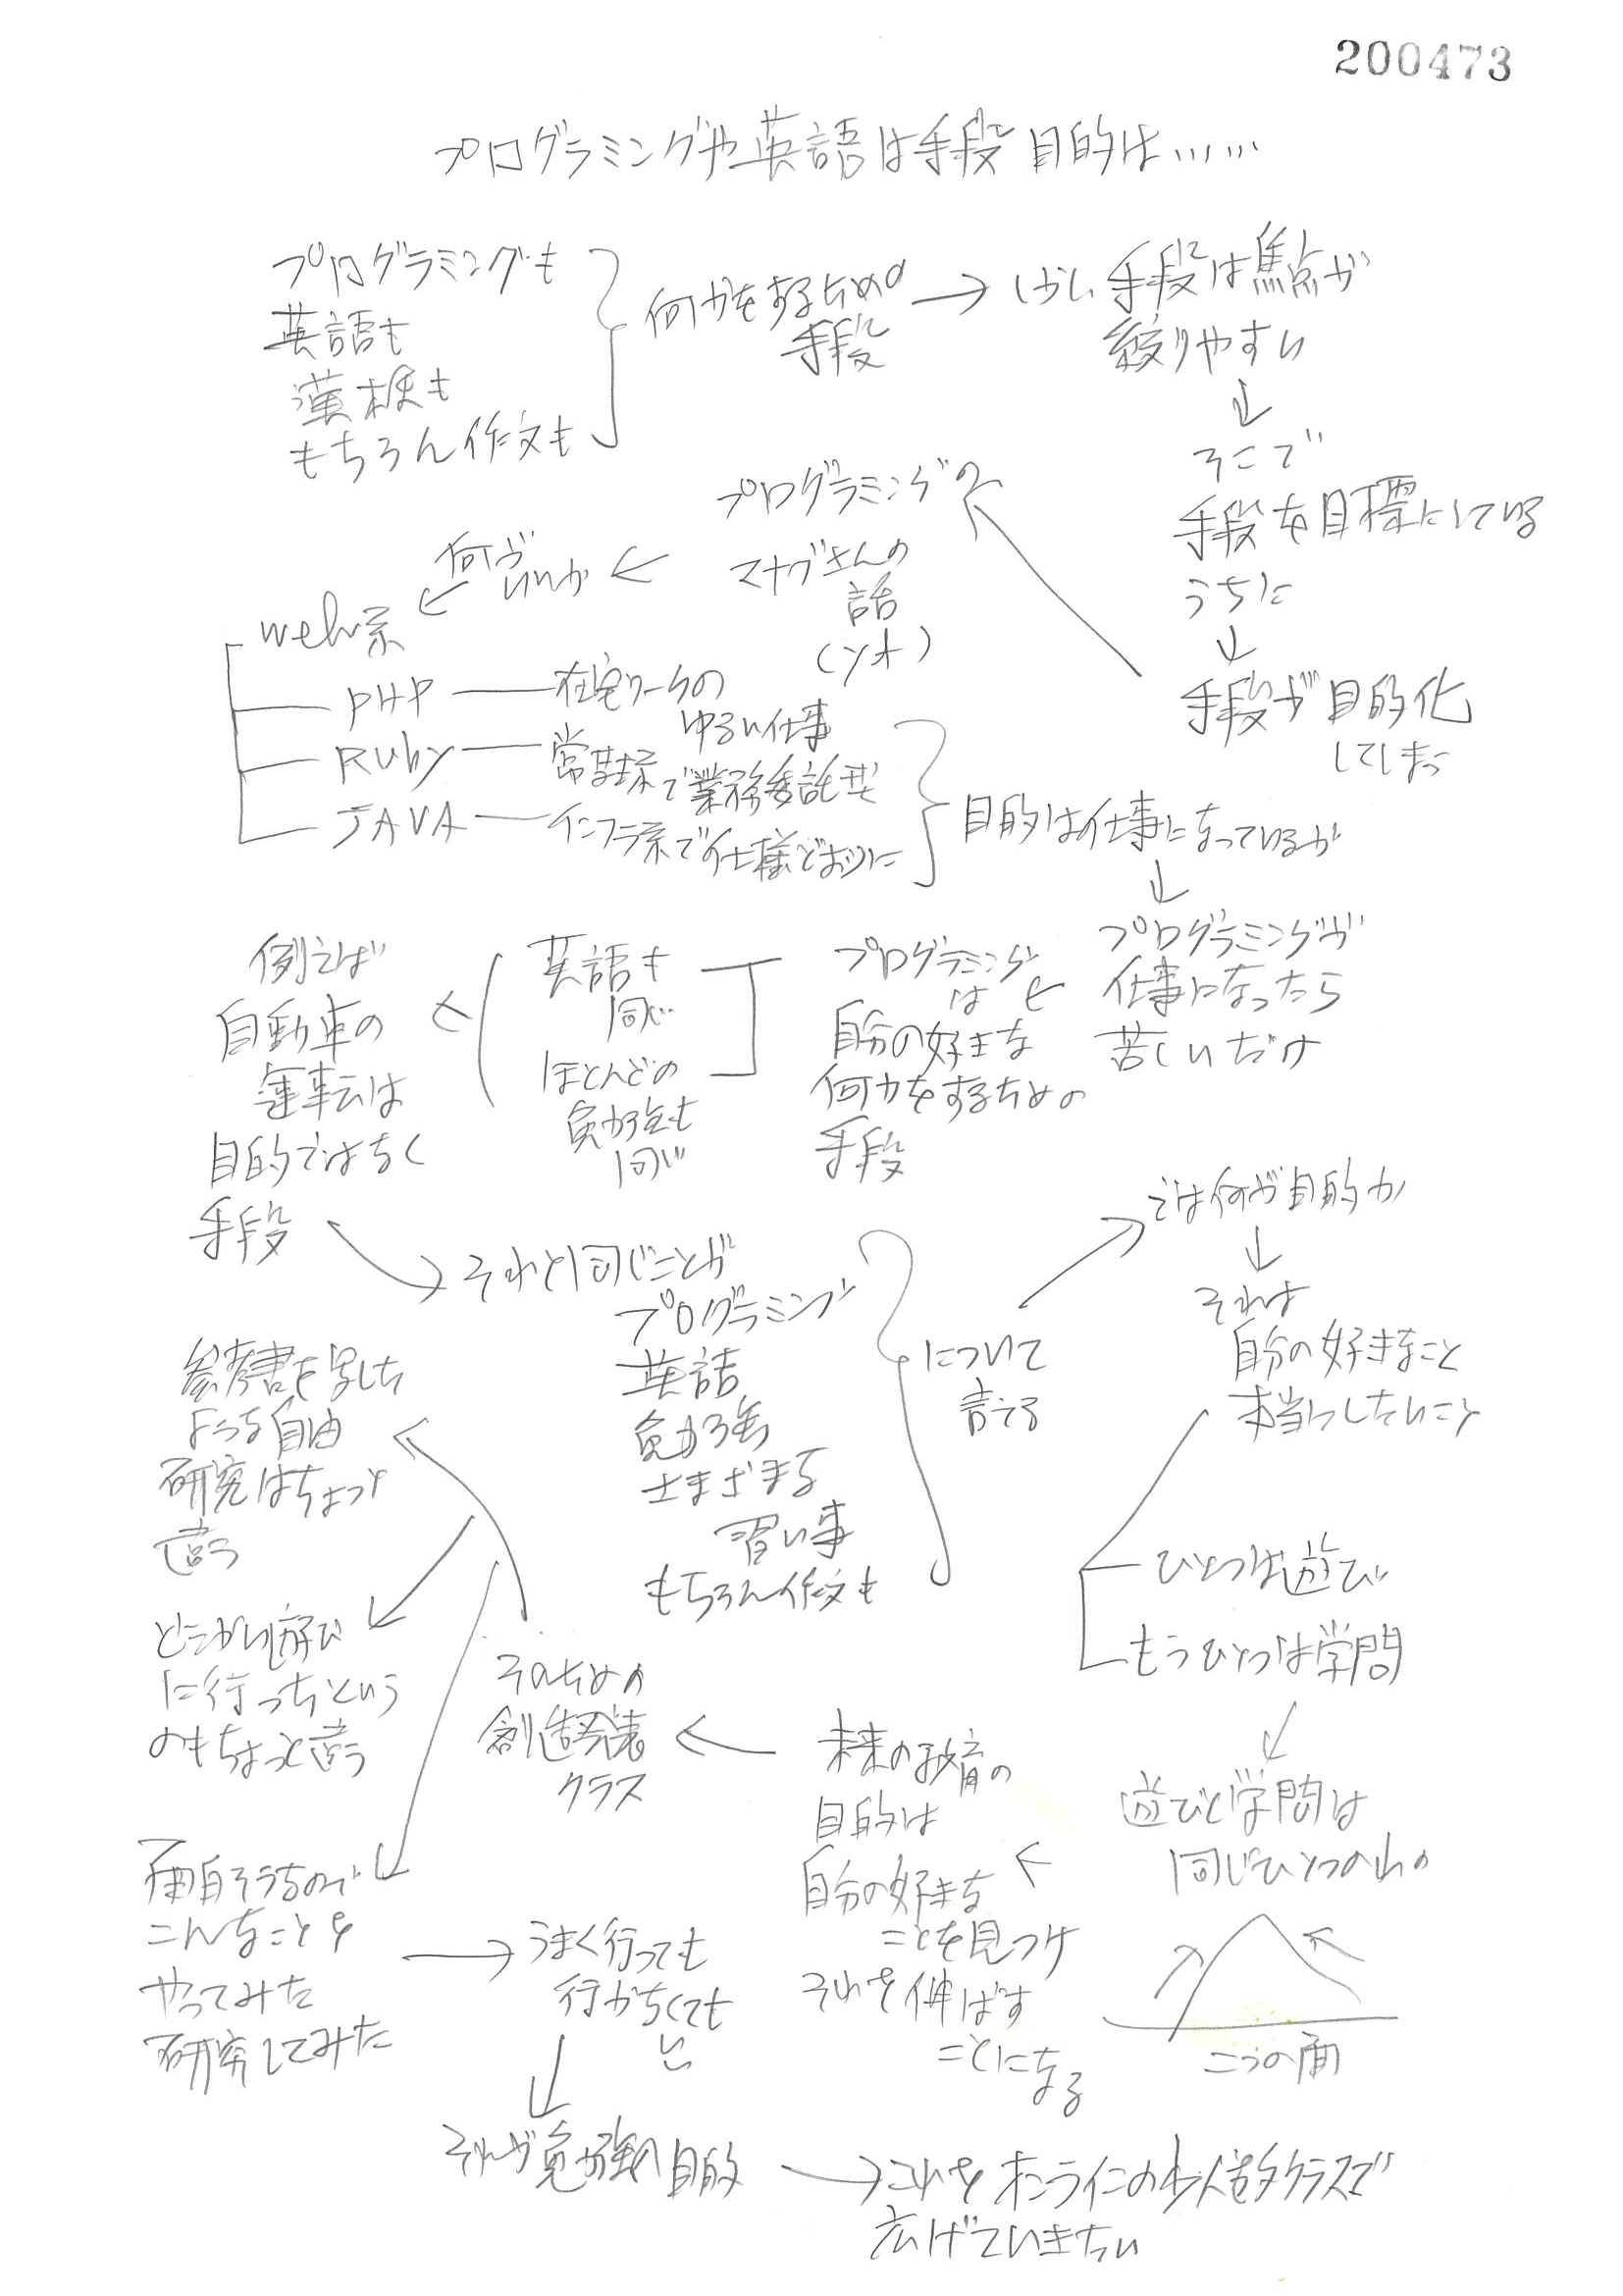 200473
プログラミングや英語は手段 目的は……
プログラミングも
英語も
漢検も
もちろん作文も
何かをするための
手段
しかし 手段は焦点が
絞りやすい
そこで
手段を目標にしている
うちに
手段が目的化
してしまう
プログラミングの
マナブさんの
話
何が
いいか
web系
PHP
在宅ワークの
ゆるい仕事
Ruby
常駐系で業務委託型
JAVA
インフラ系で仕様どおりに
目的は仕事になっているが
プログラミングが
仕事になったら
苦しいだけ
プログラミング
は
自分の好きな
何かをするための
手段
英語も
同じ
ほとんどの
勉強も
同じ
例えば
自動車の
運転は
目的ではなく
手段
それと同じことが
プログラミング
英語
勉強
さまざまな
習い事
もちろん作文も
について
言える
では何が目的か
それは
自分の好きなこと
本当にしたいこと
ひとつは遊び
もうひとつは学問
遊びと学問は
同じひとつのもの
二つの面
未来の教育の
目的は
自分の好きな
ことを見つけ
それを伸ばす
ことになる
そのための
創造発表
クラス
参考書を写した
ような自由
研究はちょっと
違う
どこかに遊び
に行ったという
のもちょっと違う
面白そうなので
こんなことを
やってみた
研究してみた
うまく行っても
行かなくても
いい
それが勉強の目的
これをオンラインの少人数クラスで
広げていきたい